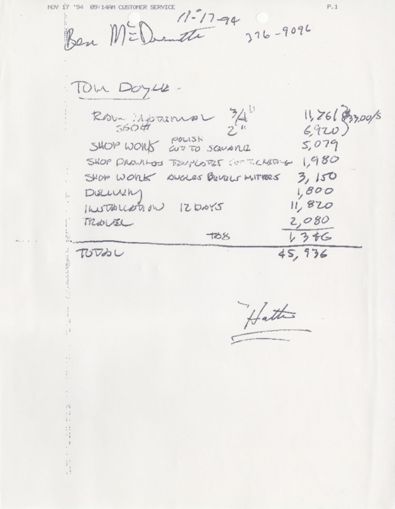 NOV 17 '94 09:14AM CUSTOMER SERVICE P.1
11-17-94
Ben McDermott 376-9096
TOM DOYLE -
RAW MATERIAL 3/4" 11,761
2" 6,920
SHOP WORK POLISH CUT TO SQUARE 5,079
SHOP DRAWINGS TEMPLATES 1,980
SHOP WORK ANGLES BEVELS MITERS 3,150
DELIVERY 1,800
INSTALLATION 12 DAYS 11,820
TRAVEL 2,080
1,346
TOTAL 45,936